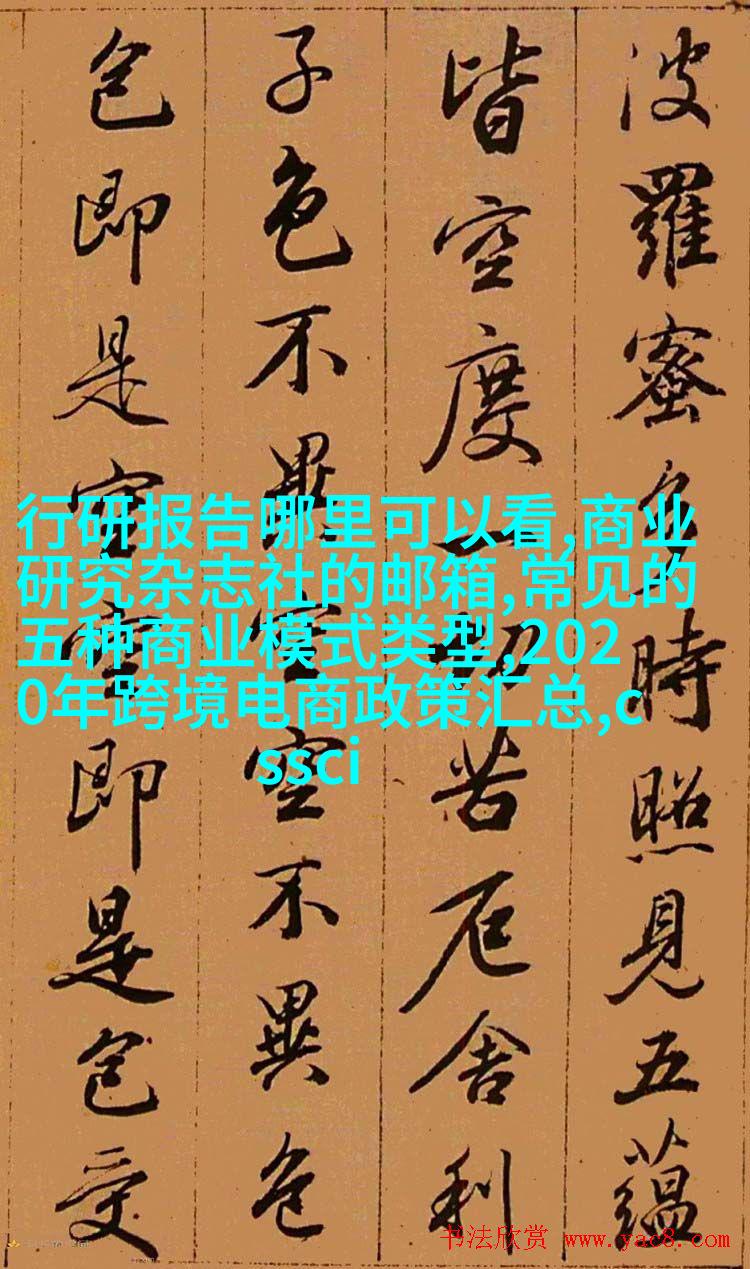 波羅蜜多時照見五蘊
皆空度一切苦厄舍利
子色不異空空不異色
色即是空空即是色受
行研报告哪里可以看,商业
研究杂志社的邮箱,常见的
五种商业模式类型,202
0年跨境电商政策汇总,c
ssci
书法欣赏 www.yac8.com